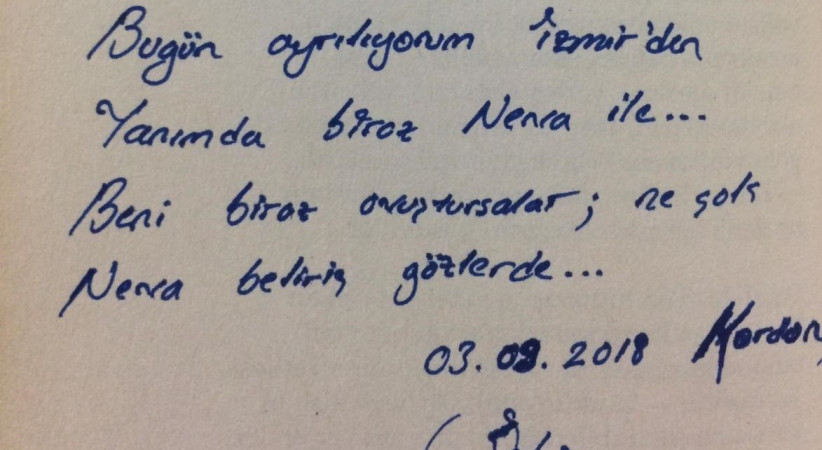 Bugün ayrılıyorum İzmir'den
Yanımda biraz Nenra ile...
Beni biraz ovuştursalar; ne çok
Nenra belirir gözlerde...
03.09.2018 Kordon